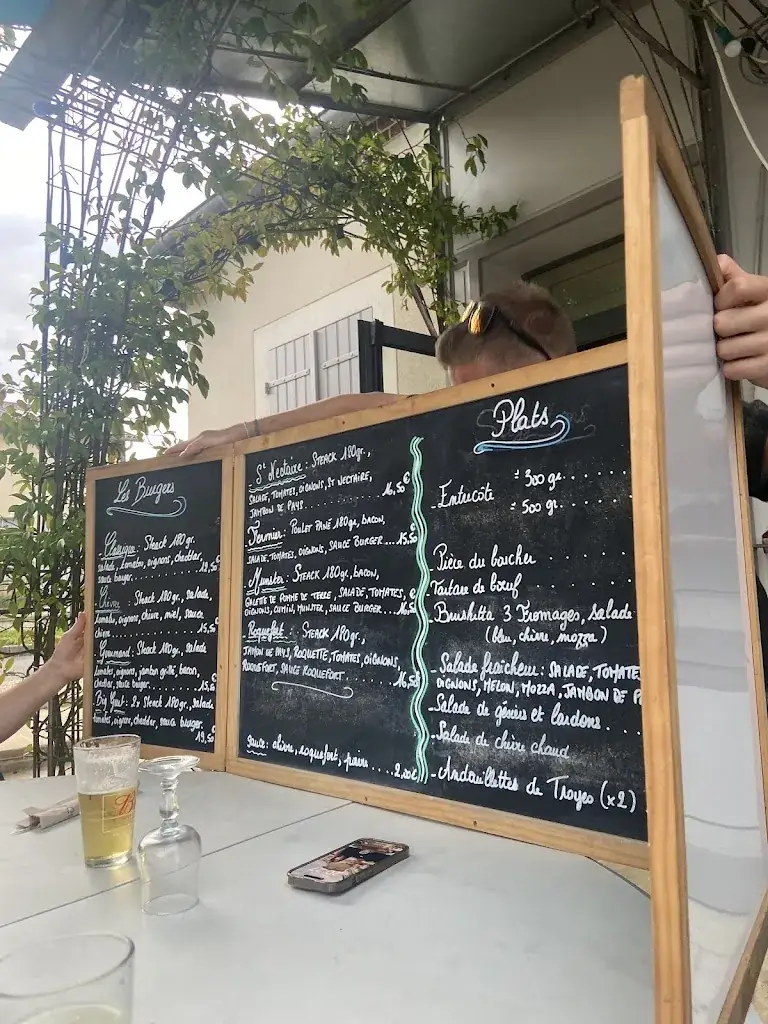 Les Burgers
Classique : Steack 180 gr.
salade, tomates, oignons, cheddar,
sauce burger.
Chèvre : Steack 180 gr., salade
tomates, oignons, chèvre, miel, sauce
chèvre 15,50€
Gourmand : Steack 180 gr., salade
tomates, oignons, jambon grillé, bacon,
cheddar, sauce burger
Big Gout : 2x Steack 180 gr., salade
tomates, oignons, cheddar, sauce burger.
19,50
St Nectaire : STEACK 180gr.,
SALADE, TOMATES, OIGNONS, ST NECTAIRE,
JAMBON DE PAYS 16,50€
Fermier : POULET PANÉ 180gr, BACON,
SALADE, TOMATES, OIGNONS, SAUCE BURGER...15,50
Munster : STEACK 180gr, BACON,
GALETTE DE POMME DE TERRE, SALADE, TOMATES,
OIGNONS, CUMIN, MUNSTER, SAUCE BURGER...
Roquefort : STEACK 180gr.,
JAMBON DE PAYS, ROQUETTE, TOMATES, OIGNONS,
ROQUEFORT, SAUCE ROQUEFORT 16,50
Sauce : chèvre, roquefort, poivre ..... 2,00€
Plats
Entrecôte ± 300 gr.
± 500 gr.
Pièce du boucher
Tartare de bœuf
Brushetta 3 Fromages, salade
(bleu, chèvre, mozza)
Salade fraîcheur : SALADE, TOMATE
OIGNONS, MELON, MOZZA, JAMBON DE P
Salade de gésiers et lardons
Salade de chèvre chaud
Andouillettes de Troyes (x2)